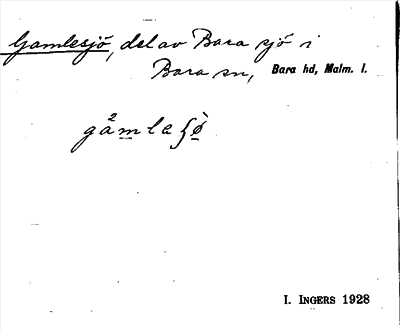 Gamlesjö, del av Bara sjö i
Bara sn, Bara hd, Malm. l.
I. INGERS 1928